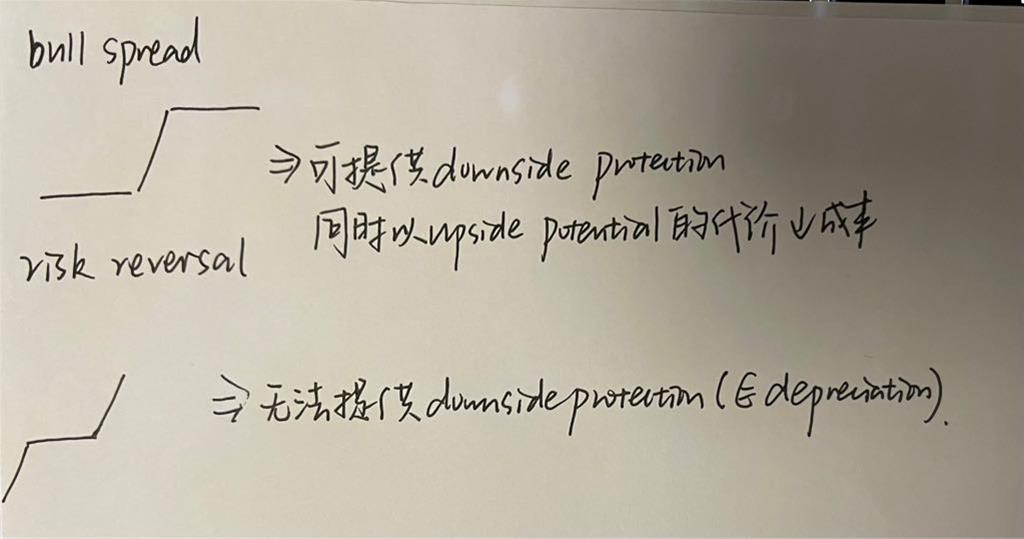 bull spread
⇒可提供downside protection
同时以upside potential的代价↓成本
risk reversal
⇒无法提供downside protection(€ depreciation).